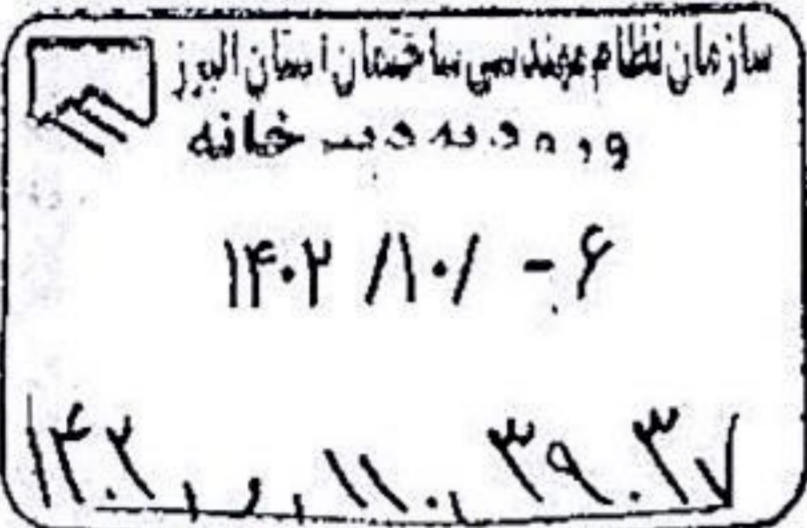 سازمان نظام مهندسی ساختمان استان البرز
ورود به دبیرخانه
۱۴۰۲ /۱۰/ -۶
۱۴۰۲ , و , ۱۱۰ , ۳۹۰۳۷